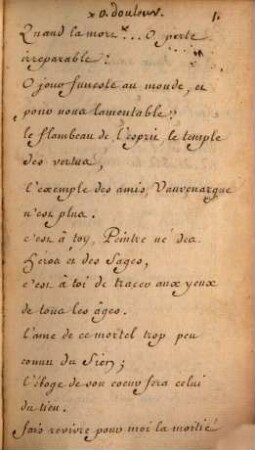 x o douleur. 1.
Quand la mort x... O perte
irreparable!
O jour funeste au monde, et
pour nous lamentable!
le flambeau de l'esprit le temple
des vertus,
l'exemple des amis, Vauvenargue
n'est plus.
c'est à toy, Peintre né des
héros et des Sages,
c'est à toi de tracer aux yeux
de tous les âges.
l'ame de ce mortel trop peu
connu du Sien;
l'éloge de son coeur sera celui
du tien.
fais revivre pour moi la moitié